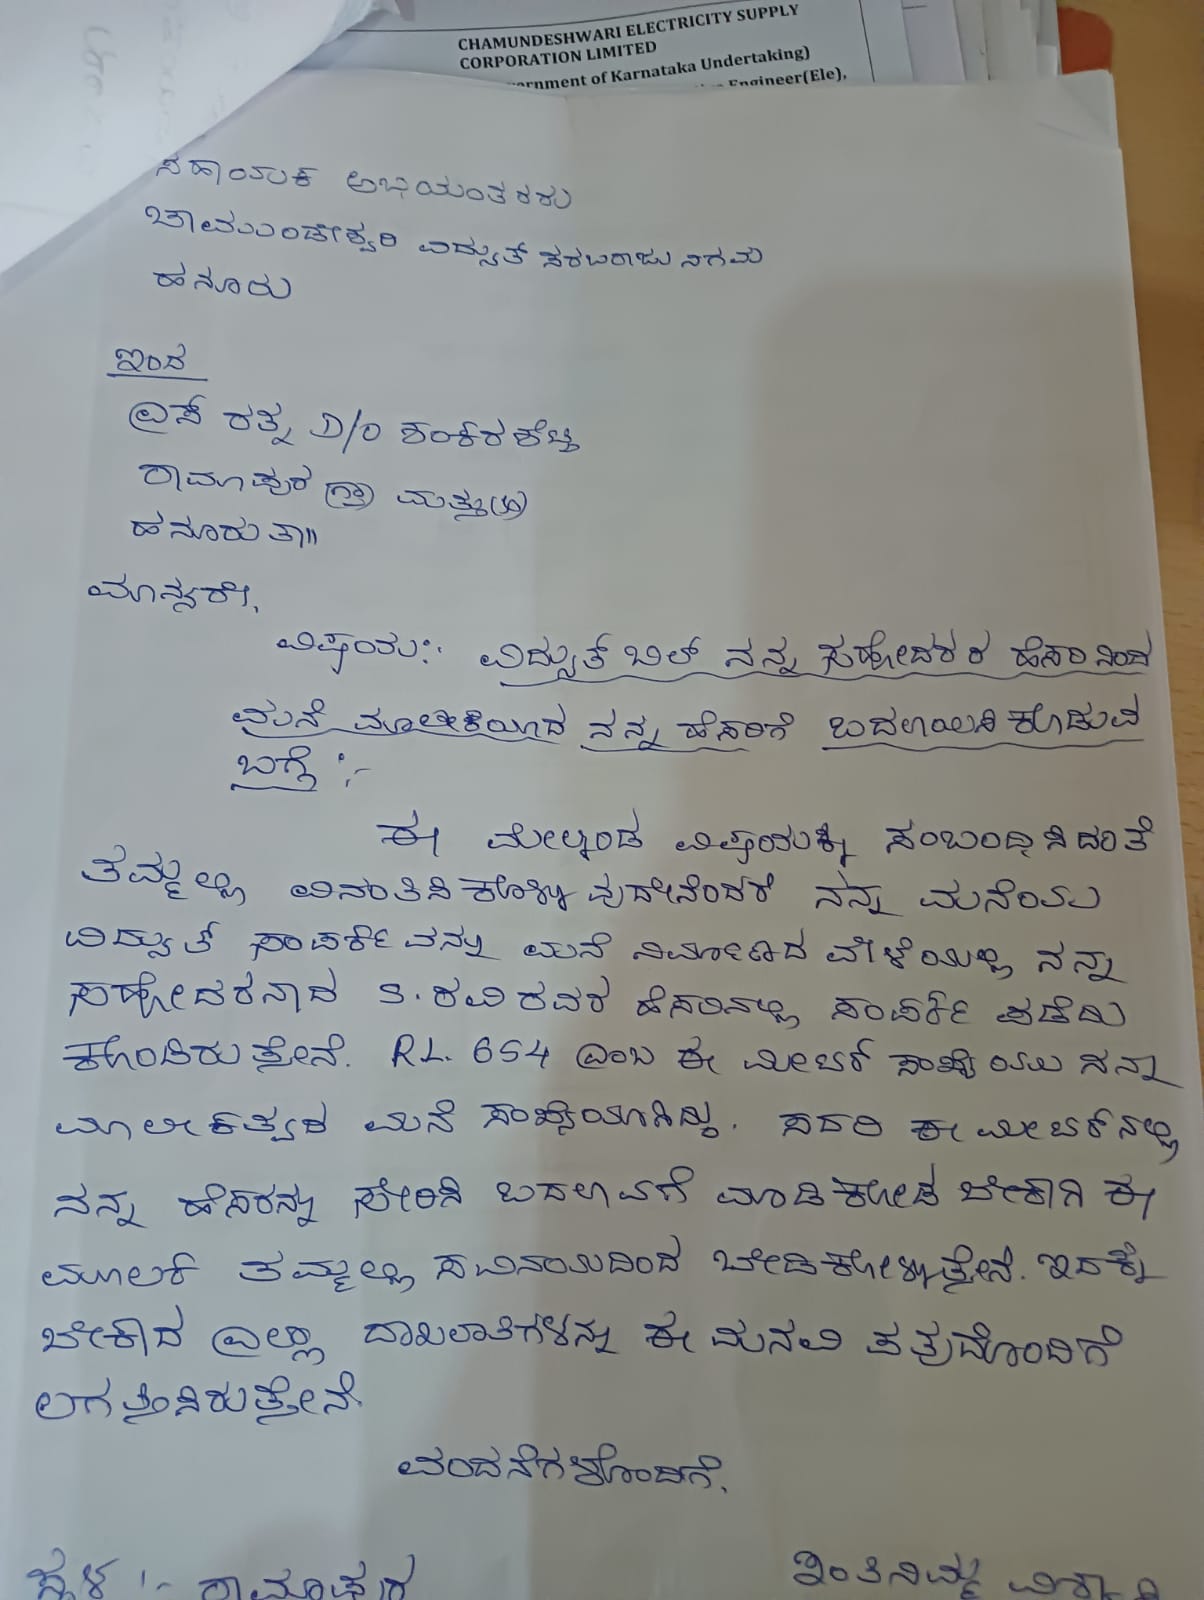 CHAMUNDESHWARI ELECTRICITY SUPPLY
CORPORATION LIMITED
ernment of Karnataka Undertaking)
Engineer(Ele),
ಸಹಾಯಕ ಅಭಿಯಂತರರು
ಚಾಮುಂಡೇಶ್ವರಿ ವಿದ್ಯುತ್ ಸರಬರಾಜು ನಿಗಮ
ಹನೂರು
ಇಂದ
ಎಸ್ ರತ್ನ D/O ಶಂಕರಶೆಟ್ಟಿ
ರಾಮಾಪುರ (ಗ್ರಾ) ಮತ್ತು (ಅ)
ಹನೂರು ತಾ||
ಮಾನ್ಯರೇ,
ವಿಷಯ:- ವಿದ್ಯುತ್ ಬಿಲ್ ನನ್ನ ಸಹೋದರರ ಹೆಸರಿನಿಂದ
ಮನೆ ಮಾಲೀಕಿಯಾದ ನನ್ನ ಹೆಸರಿಗೆ ಬದಲಾಯಿಸಿಕೊಡುವ
ಬಗ್ಗೆ :-
ಈ ಮೇಲ್ಕಂಡ ವಿಷಯಕ್ಕೆ ಸಂಬಂಧಿಸಿದಂತೆ
ತಮ್ಮಲ್ಲಿ ವಿನಂತಿಸಿಕೊಳ್ಳುವುದೇನೆಂದರೆ ನನ್ನ ಮನೆಯು
ವಿದ್ಯುತ್ ಸಂಪರ್ಕವನ್ನು ಮನೆ ನಿರ್ಮಾಣದ ವೇಳೆಯಲ್ಲಿ ನನ್ನ
ಸಹೋದರನಾದ S. ರವಿ ರವರ ಹೆಸರಿನಲ್ಲಿ ಸಂಪರ್ಕ ಪಡೆದು
ಕೊಂಡಿರುತ್ತೇನೆ. RL. 654 ಎಂಬ ಈ ಮೀಟರ್ ಸಂಖ್ಯೆಯು ನನ್ನ
ಮಾಲೀಕತ್ವದ ಮನೆ ಸಂಖ್ಯೆಯಾಗಿದ್ದು. ಸದರಿ ಈ ಮೀಟರ್ ನಲ್ಲಿ
ನನ್ನ ಹೆಸರನ್ನು ಸೇರಿಸಿ ಬದಲಾವಣೆ ಮಾಡಿಕೊಡಬೇಕಾಗಿ ಈ
ಮೂಲಕ ತಮ್ಮಲ್ಲಿ ಸವಿನಯದಿಂದ ಬೇಡಿಕೊಳ್ಳುತ್ತೇನೆ. ಇದಕ್ಕೆ
ಬೇಕಾದ ಎಲ್ಲಾ ದಾಖಲಾತಿಗಳನ್ನು ಈ ಮನವಿ ಪತ್ರದೊಂದಿಗೆ
ಲಗತ್ತಿಸಿರುತ್ತೇನೆ.
ವಂದನೆಗಳೊಂದಿಗೆ.
ಸ್ಥಳ :- ರಾಮಾಪುರ
ಇಂತಿ ನಿಮ್ಮ